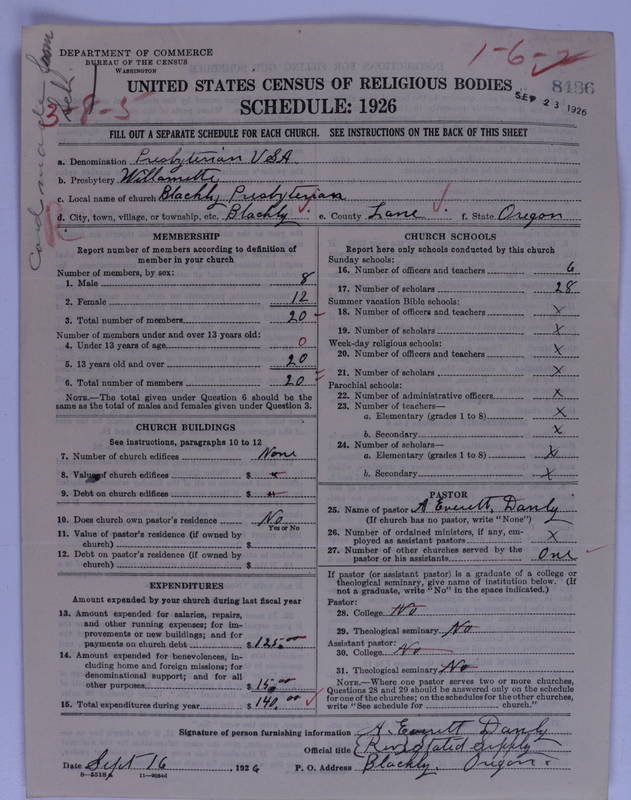 DEPARTMENT OF COMMERCE
BUREAU OF THE CENSUS
WASHINGTON
1-6-2
8486
SEP 23 1926
3-8-5
Card made from Sch.
UNITED STATES CENSUS OF RELIGIOUS BODIES
SCHEDULE: 1926
FILL OUT A SEPARATE SCHEDULE FOR EACH CHURCH. SEE INSTRUCTIONS ON THE BACK OF THIS SHEET
a. Denomination Presbyterian USA
b. Presbytery Willamette
c. Local name of church Blachly Presbyterian
d. City, town, village, or township, etc. Blachly e. County Lane f. State Oregon
MEMBERSHIP
Report number of members according to definition of
member in your church
Number of members, by sex:
1. Male 8
2. Female 12
3. Total number of members 20
Number of members under and over 13 years old:
4. Under 13 years of age 0
5. 13 years old and over 20
6. Total number of members 20
NOTE.—The total given under Question 6 should be the
same as the total of males and females given under Question 3.
CHURCH BUILDINGS
See instructions, paragraphs 10 to 12
7. Number of church edifices None
8. Value of church edifices $ x
9. Debt on church edifices $
10. Does church own pastor's residence No
Yes or No
11. Value of pastor's residence (if owned by
church) $
12. Debt on pastor's residence (if owned by
church) $
EXPENDITURES
Amount expended by your church during last fiscal year
13. Amount expended for salaries, repairs,
and other running expenses; for im-
provements or new buildings; and for
payments on church debt $ 125.00
14. Amount expended for benevolences, in-
cluding home and foreign missions; for
denominational support; and for all
other purposes $ 15.00
15. Total expenditures during year $ 140.00
CHURCH SCHOOLS
Report here only schools conducted by this church
Sunday schools:
16. Number of officers and teachers 6
17. Number of scholars 28
Summer vacation Bible schools:
18. Number of officers and teachers x
19. Number of scholars x
Week-day religious schools:
20. Number of officers and teachers x
21. Number of scholars x
Parochial schools:
22. Number of administrative officers x
23. Number of teachers—
a. Elementary (grades 1 to 8) x
b. Secondary x
24. Number of scholars—
a. Elementary (grades 1 to 8) x
b. Secondary x
PASTOR
25. Name of pastor A Everett Dandy
(If church has no pastor, write "None")
26. Number of ordained ministers, if any, em-
ployed as assistant pastors x
27. Number of other churches served by the
pastor or his assistants One
If pastor (or assistant pastor) is a graduate of a college or
theological seminary, give name of institution below. (If
not a graduate, write "No" in the space indicated.)
Pastor:
28. College No
29. Theological seminary No
Assistant pastor:
30. College No
31. Theological seminary No
NOTE.—Where one pastor serves two or more churches,
Questions 28 and 29 should be answered only on the schedule
for one of the churches; on the schedules for the other churches,
write "See schedule for church."
Signature of person furnishing information A. Everett Dandy
Official title (Rev) Stated Supply
Date Sept 16 1926 P. O. Address Blachly, Oregon.
8-5518a 11-9054d